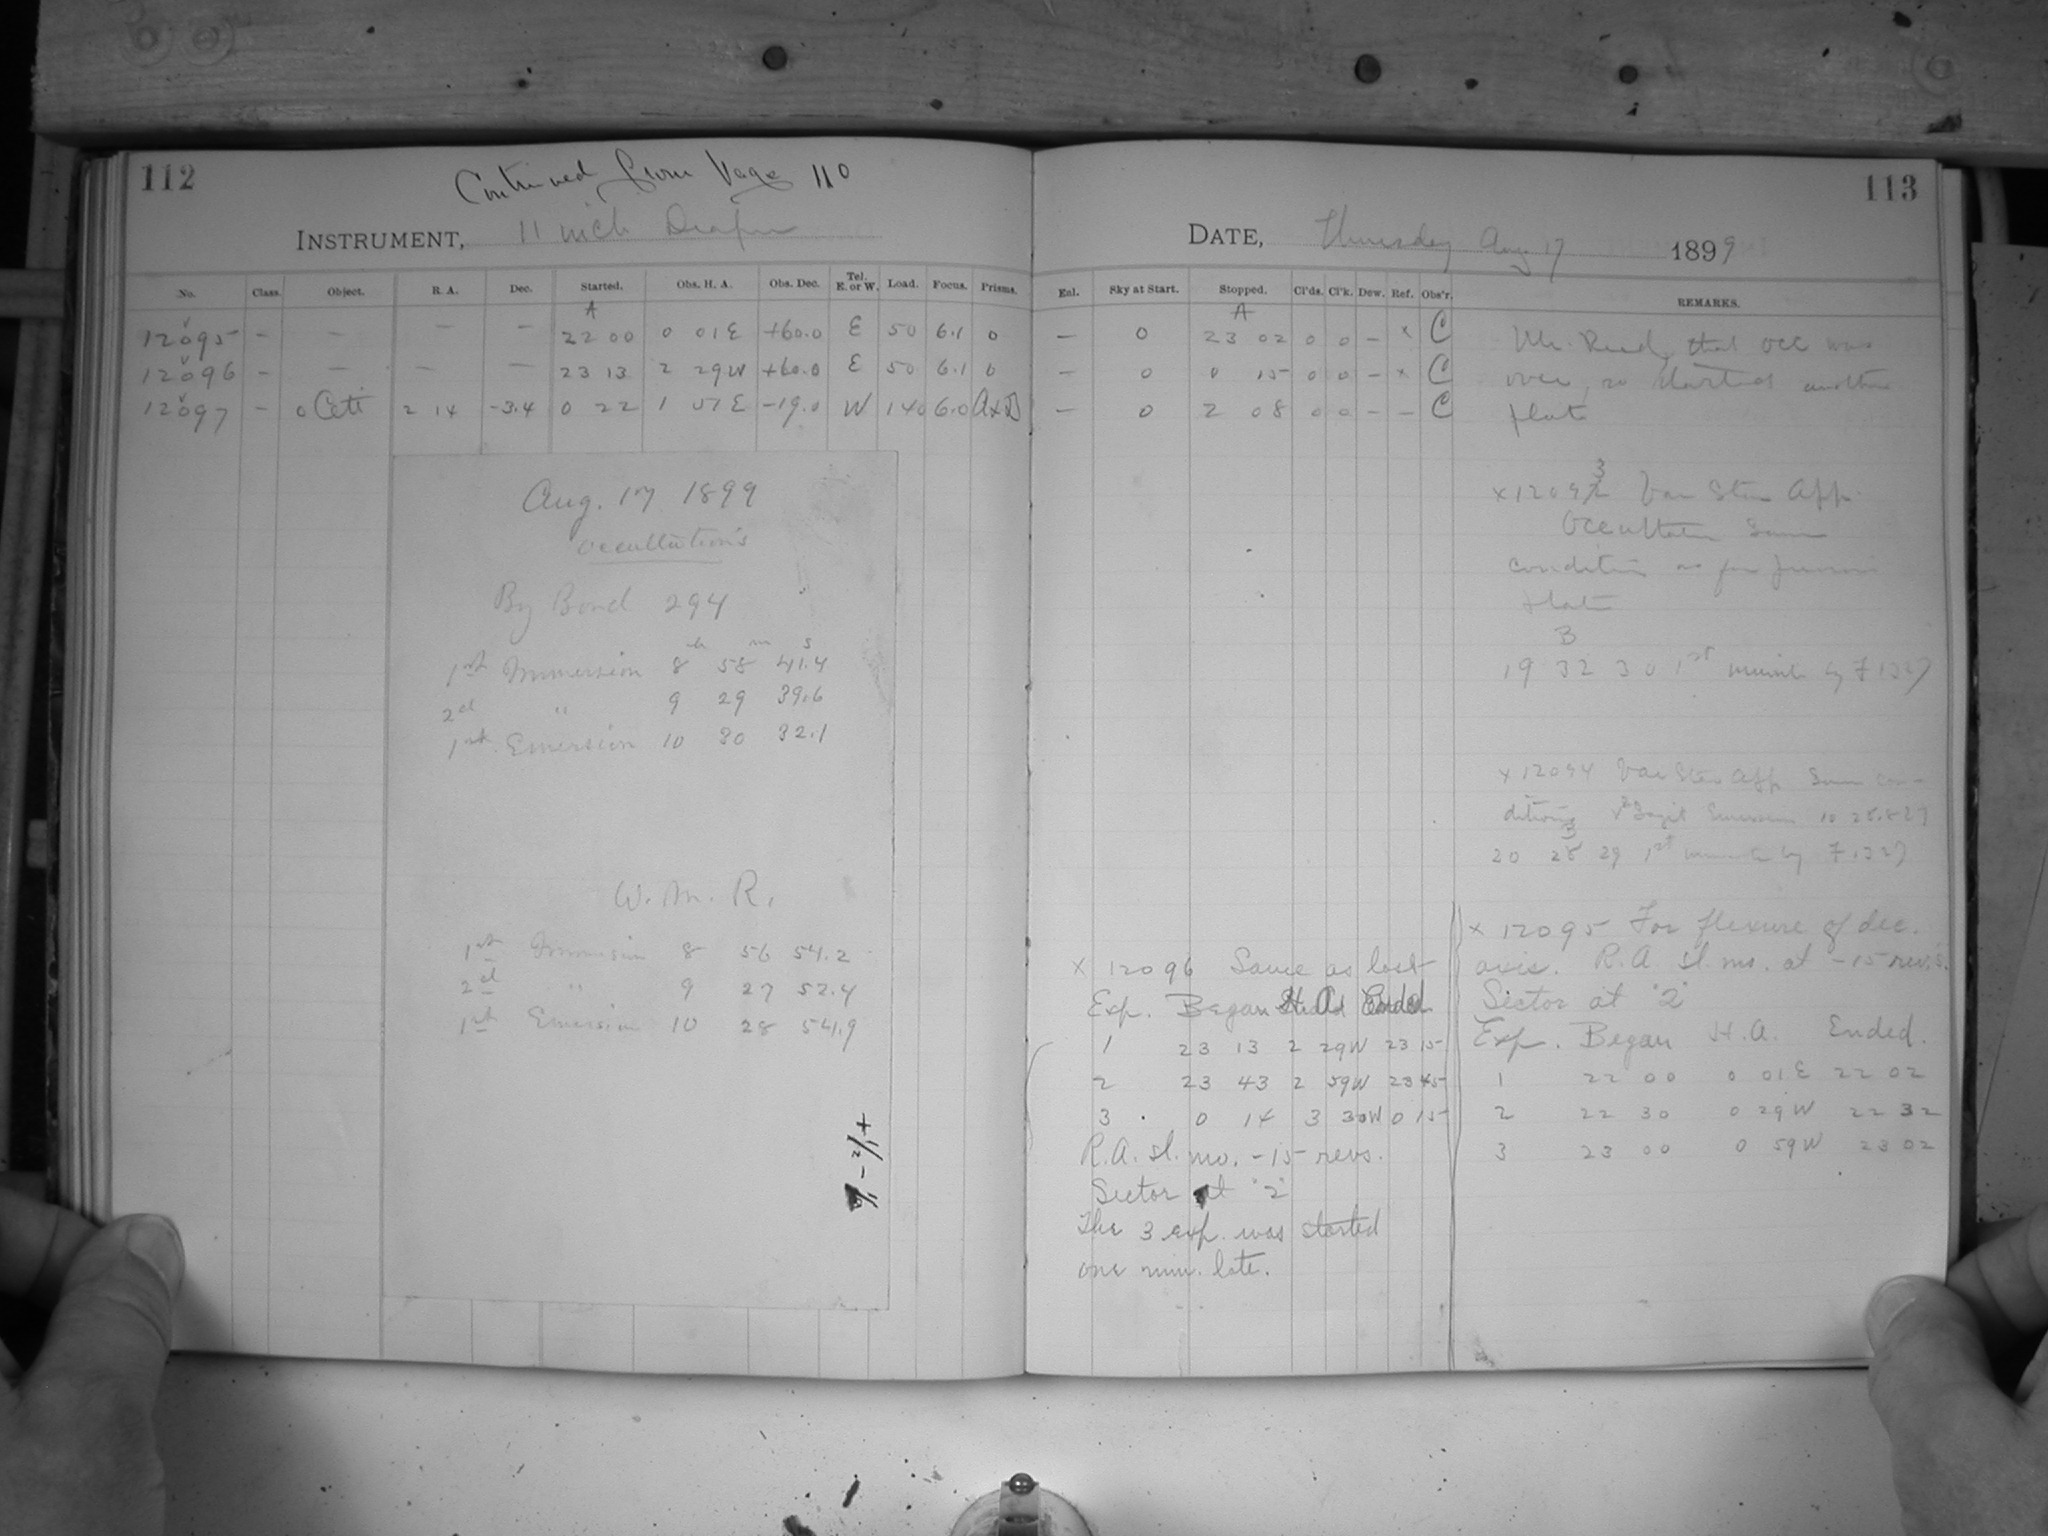 112
Continued from Page 110
INSTRUMENT, 11 inch Draper
No. Class. Object. R. A. Dec. Started. Obs. H. A. Obs. Dec. Tel. E. or W. Load. Focus. Prisms.
A
12095 - - - - 22 00 0 01E +60.0 E 50 6.1 0
12096 - - - - 23 13 2 29W +60.0 E 50 6.1 0
12097 - o Ceti 2 14 -3.4 0 22 1 51E -19.0 W 140 6.0 A+D
Aug. 17 1899
Occultations
By Bond 294
h m s
1st Immersion 8 58 41.4
2d " 9 29 39.6
1st Emersion 10 30 32.1
W. M. R.
1st Immersion 8 56 54.2
2d " 9 27 52.4
1st Emersion 10 28 54.9
113
DATE, Thursday Aug 17 1899
Enl. Sky at Start. Stopped. Cl'ds. Cl'k. Dew. Ref. Obs'r. REMARKS.
A
- 0 23 02 0 0 - x C
- 0 0 15 0 0 - x C
- 0 2 08 0 0 - - C
Mr. Reed that occ was
over, so started another
plate
x 12093 Var Star App.
Occultation Same
condition as for previous
plate
B
19 32 30 1st minute by F 1327
x 12094 Var Star App Same con-
ditions Emersion 10 28.8
20 28 29 1st minute by F 1327
x 12095 For flexure of dec.
axis. R.A. sl. mo. at -15 rev's.
Sector at "2"
Exp. Began H.A. Ended.
1 22 00 0 01E 22 02
2 22 30 0 29W 22 32
3 23 00 0 59W 23 02
x 12096 Same as last
Exp. Began H A Ended
1 23 13 2 29W 23 15
2 23 43 2 59W 23 45
3 0 14 3 30W 0 15
R.A. sl. mo. -15 revs.
Sector at "2"
The 3 exp. was started
one min. late.